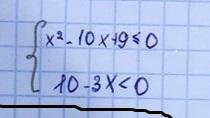 x² - 10x + 9 ≤ 0
10 - 3x < 0